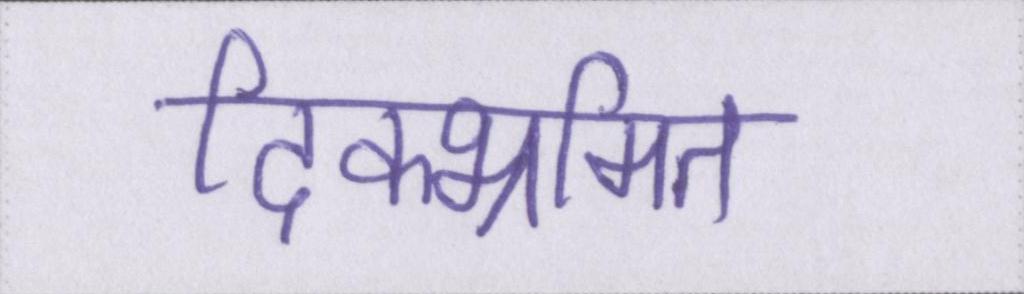 दिकभ्रमित